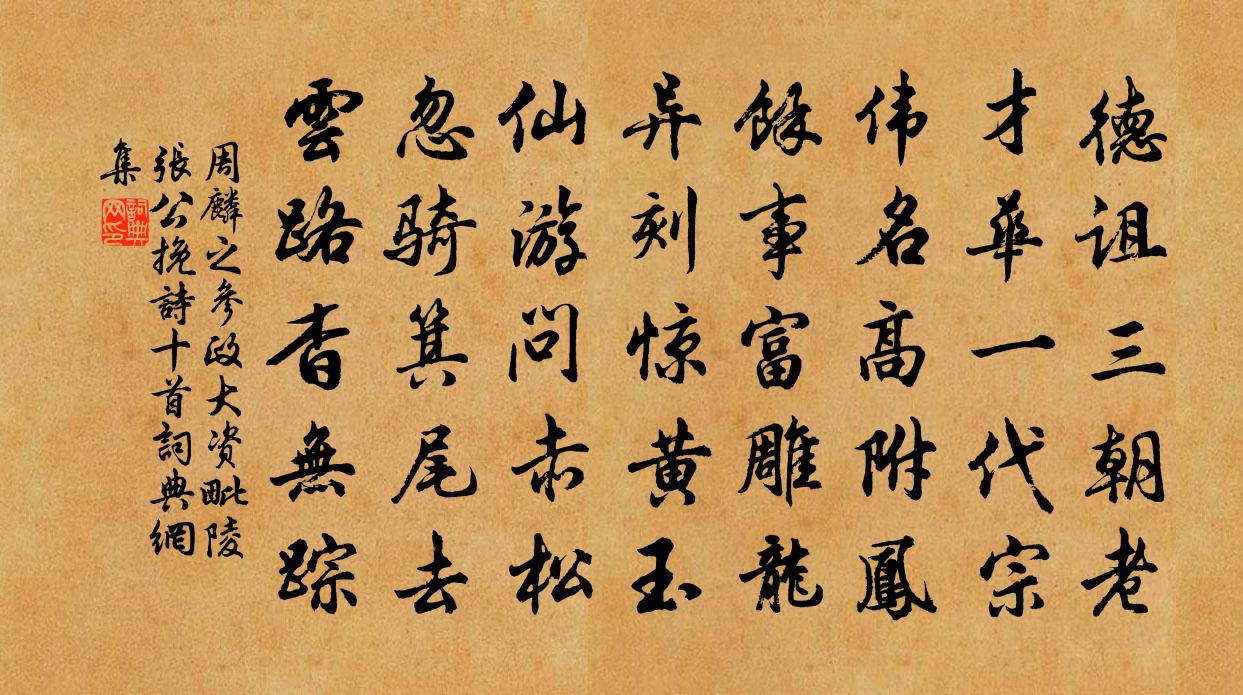 德诅三朝老
才華一代宗
伟名高附鳳
餘事富雕龍
异刻惊黄玉
仙游问赤松
忽骑箕尾去
雲路杳無踪
周麟之參政大资毗陵
張公挽詩十首詞典網
集
詞典网印